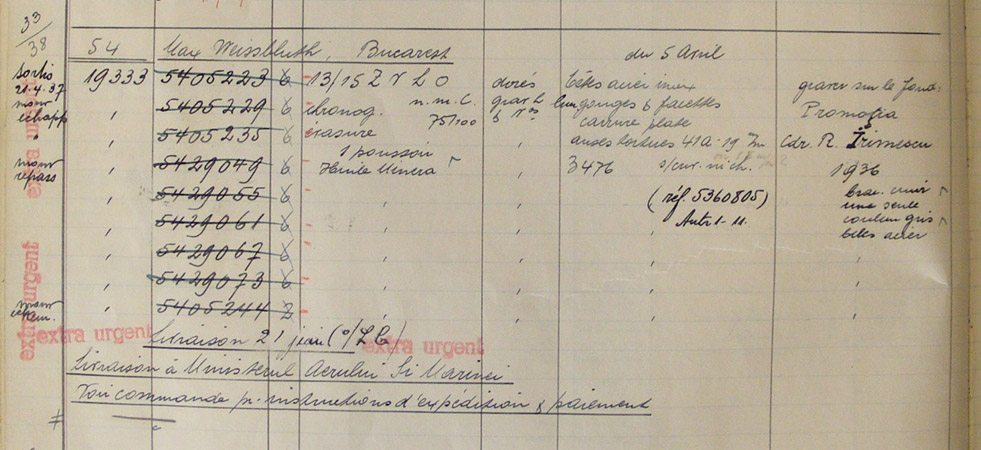 33
38
54 Max Weissbluth, Bucarest du 5 Avril
Sortis 19333 5405223 6 13/15 Z N L O dorés bêtes acier inox graver sur le fond:
21.4.37 5405229 6 chronog. n.m.c. grav. L lun gouges & facettes Promoția
mouv échapp " 5405235 6 erasure 75/100 " carrure plate
1 poussoir anses tortues 41A-19 Cdr. R. Irimescu
mouv repass " 5429049 6 Huile Minera " 3476 s/cuv. nich. 1936
" 5429055 6 " " (réf. 5360805) brac. cuir
" 5429061 6 " " Autr 1-11. une seule
couleur gris
" 5429067 6 " " " bêtes acier
" 5429073 6 " " " "
mouv rem. " 5405244 " " " "
extra urgent
extra urgent
extra urgent Livraison 21 juin (°/L C) extra urgent
Livraison à Ministerul Aerului Si Marinei
Voir commande pr. instructions d'expédition & paiement
#